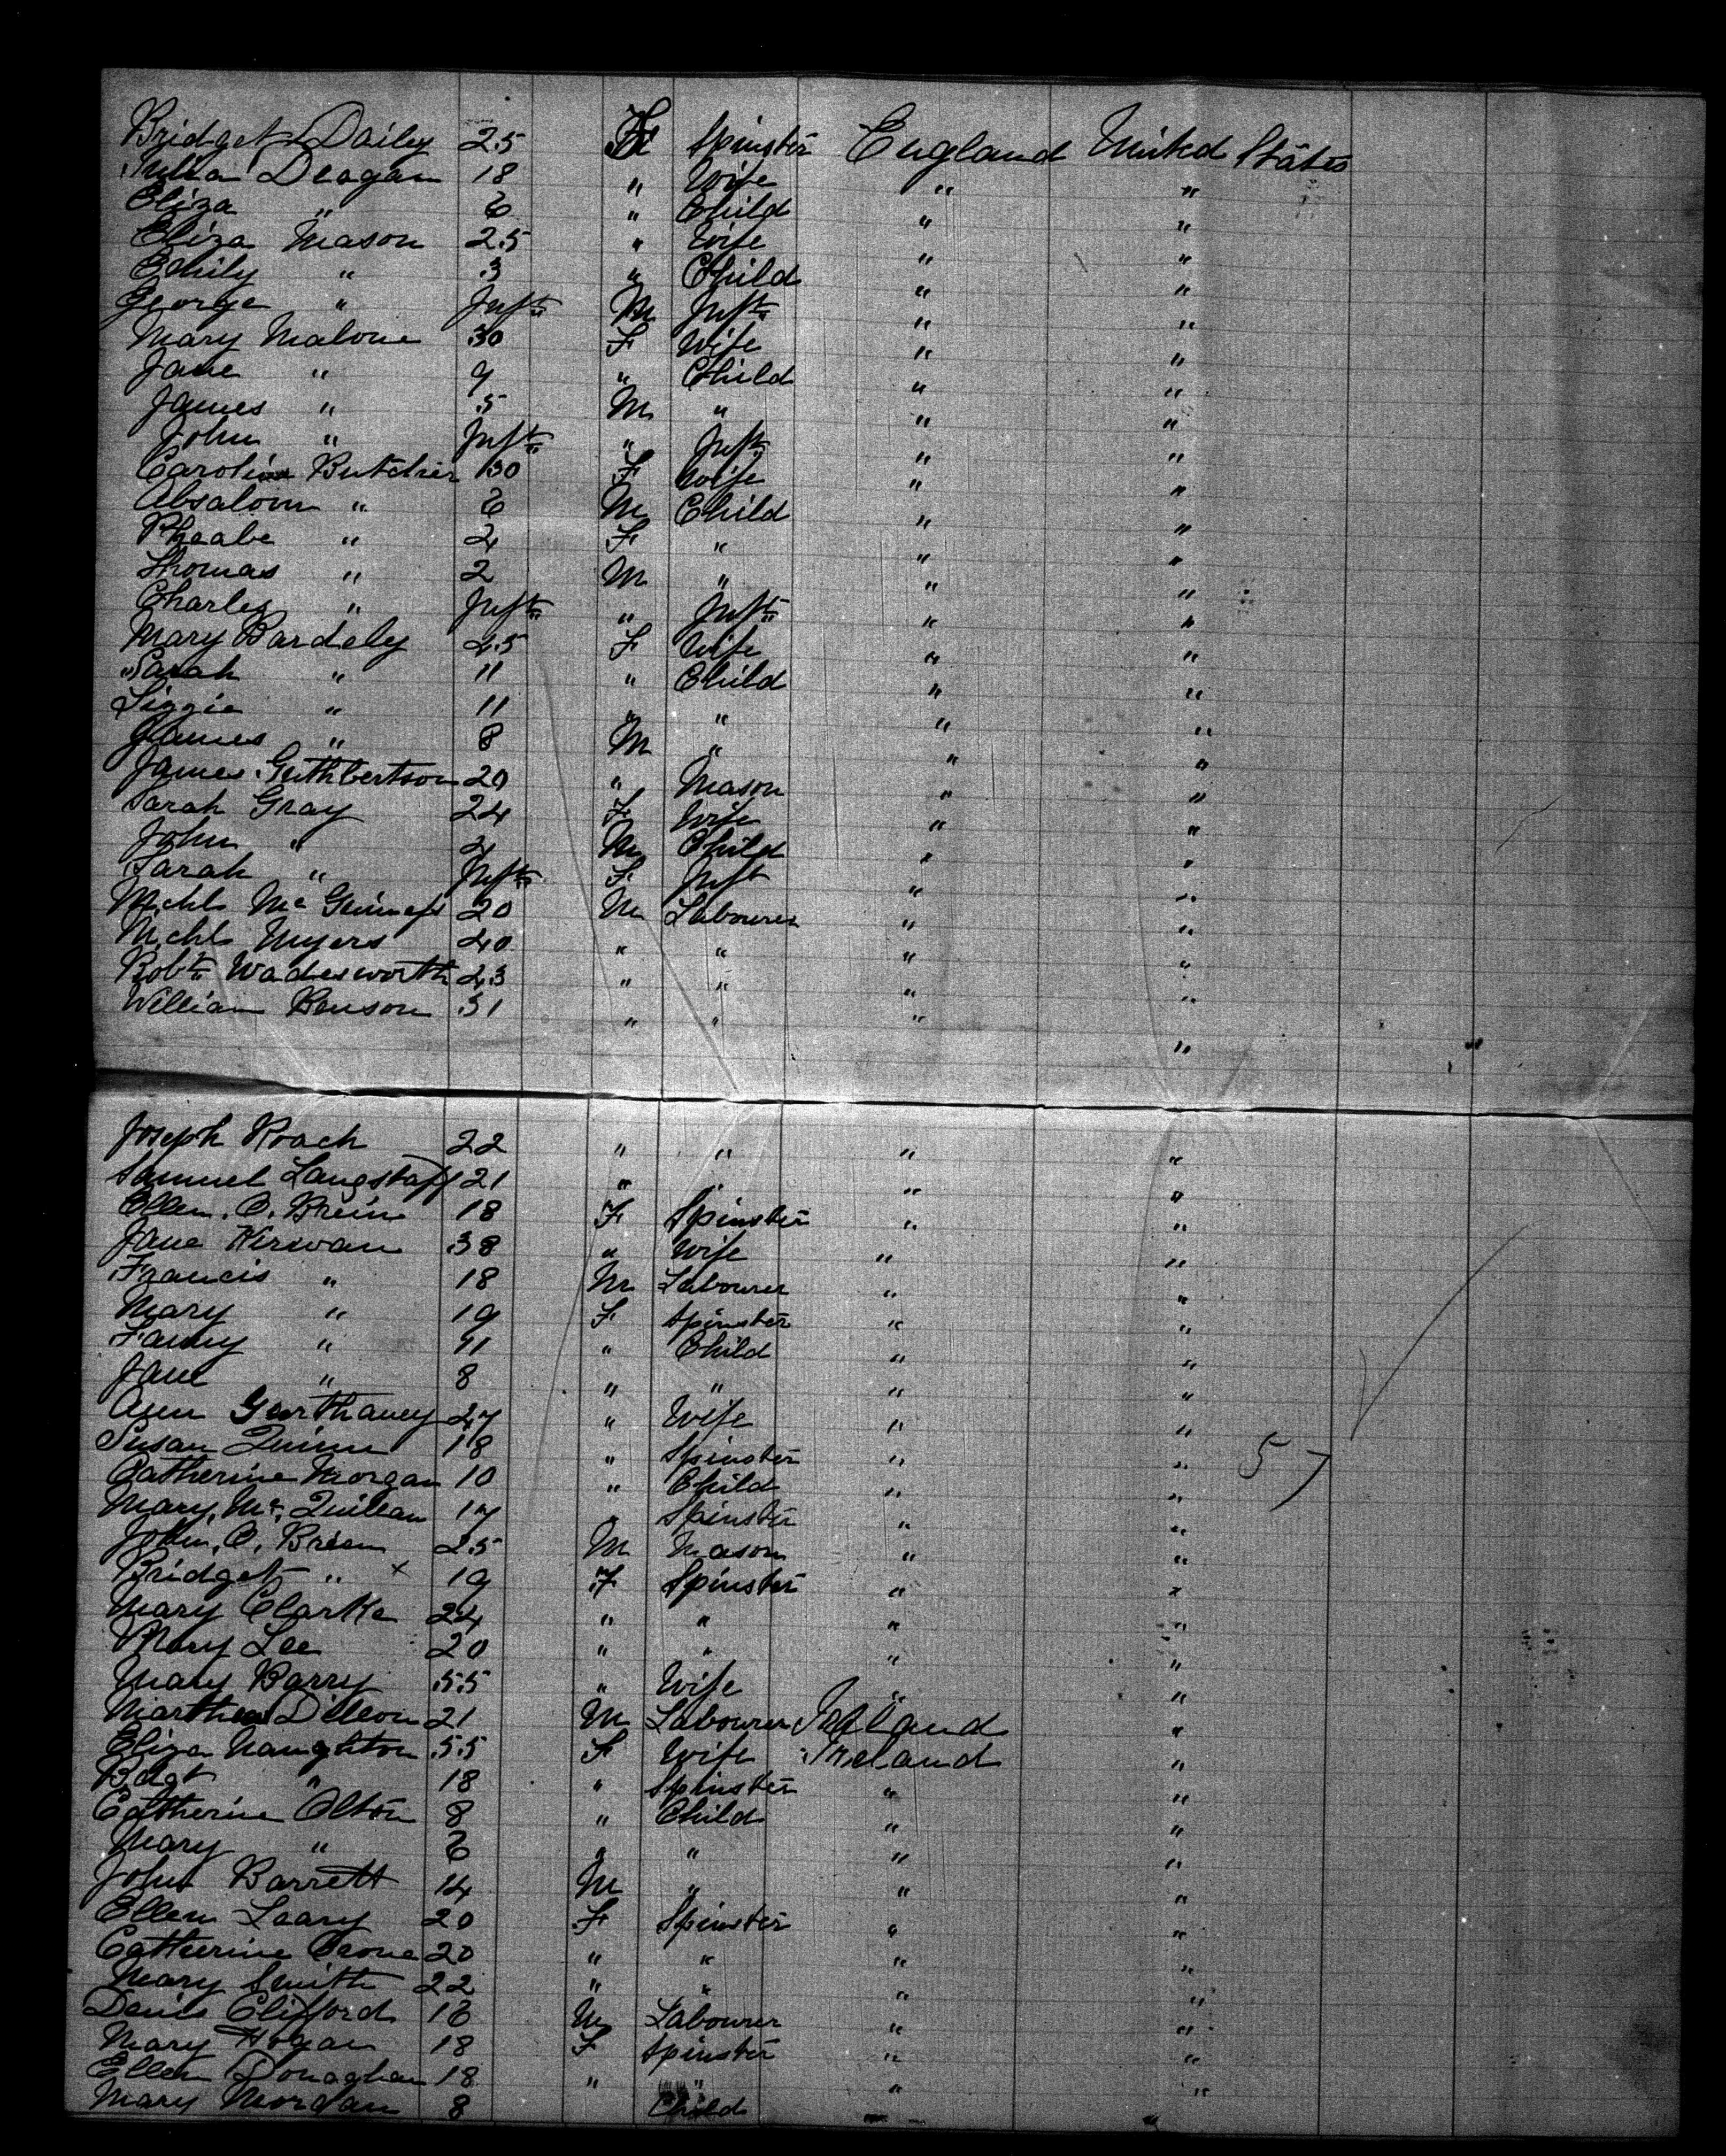 Bridget Daily 25 F Spinster England United States
Julia Deagan 18 " Wife " "
Eliza " 6 " Child " "
Eliza Mason 25 " Wife " "
Emily " 3 " Child " "
George " Inft M Inft " "
Mary Malone 30 F Wife " "
Jane " 9 " Child " "
James " 5 M " " "
John " Inft " Inft " "
Caroline Butcher 30 F Wife " "
Absalom " 6 M Child " "
Pheabe " 4 F " " "
Thomas " 2 M " " "
Charles " Inft " Inft " "
Mary Bardsly 45 F Wife " "
Sarah " 11 " Child " "
Lizzie " 11 " " " "
James " 8 M " " "
James Guthbertson 20 " Mason " "
Sarah Gray 24 F Wife " "
John " M Child " "
Sarah " Inft F Inft " "
Michl Mc Guiness 20 M Labourer " "
Michl Myers 40 " " " "
Robt Wadesworth 43 " " " "
William Benson 31 " " " "
Joseph Roach 22 " " " "
Samuel Langstaff 21 " " " "
Ellen O. Brein 18 F Spinster " "
Jane Kirwan 38 " Wife " "
Francis " 18 M Labourer " "
Mary " 19 F Spinster " "
Fanny " 11 " Child " "
Jane " 8 " " " "
Ann 47 " Wife " "
Susan Quinn 18 " Spinster " "
57
Catherine Morgan 10 " Child " "
Mary Mc Quillan 17 " Spinster " "
John O. Brien 25 M Mason " "
Bridget " x 19 F Spinster " "
Mary Clarke 24 " " " "
Mary Lee 20 " " " "
Mary Barry 55 " Wife " "
Dillon 21 M Labourer Ireland "
Eliza Naughton 55 F Wife Ireland "
Bdgt " 18 " Spinster " "
Catherine Olton 8 " Child " "
Mary " 6 " " " "
John Barrett 14 M " " "
Ellen Leary 20 F Spinster " "
Catherine Crone 20 " " " "
Mary Smith 22 " " " "
Denis Clifford 16 M Labourer " "
Mary Hogan 18 F Spinster " "
Ellen Donaghan 18 " " " "
Mary Mordan 8 Child " "